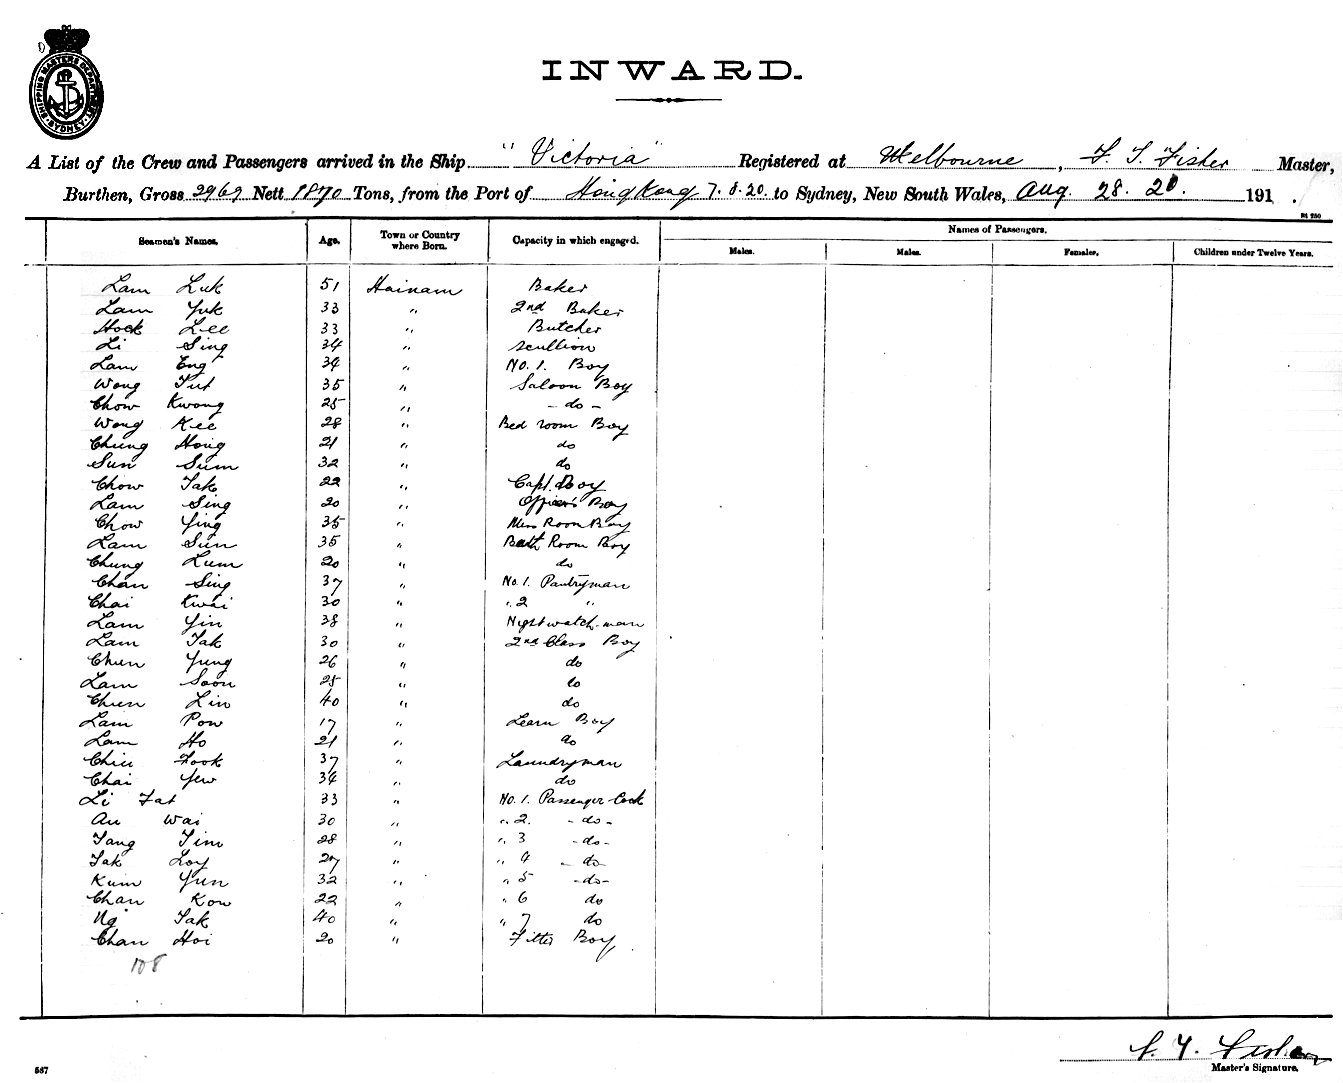 SHIPPING MASTERS DEPARTMENT SYDNEY
INWARD.
A List of the Crew and Passengers arrived in the Ship "Victoria" Registered at Melbourne, Master,
Burthen, Gross 2969 Nett 1870 Tons, from the Port of Hong Kong 7.8.20. to Sydney, New South Wales, Aug. 28. 20. 191 .
Seamen's Names. Age. Town or Country where Born. Capacity in which engaged. Names of Passengers.
Males. Males. Females. Children under Twelve Years.
Lam Luk 51 Hainam Baker
Lam Yuk 33 " 2nd Baker
Hock Lee 33 " Butcher
Li Sing 34 " Scullion
Lam Eng 34 " No. 1. Boy
Wong Tut 35 " Saloon Boy
Chow Kwong 25 " - do -
Wong Kee 28 " Bed room Boy
Chung Hong 21 " do
Sun Sum 32 " do
Chow Tak 22 " Capt. Boy
Lam Sing 20 " Officer's Boy
Chow Ying 35 " Mess Room Boy
Lam Sun 35 " Bath Room Boy
Chung Lum 20 " do
Chan Sing 37 " No. 1. Pantryman
Chai Kwai 30 " " 2 "
Lam Yin 38 " Nightwatch-man
Lam Tak 30 " 2nd Class Boy
Chun Yung 26 " do
Lam Soon 25 " do
Chun Lin 40 " do
Lam Pow 17 " Learn Boy
Lam Ho 21 " do
Chiu Fook 37 " Laundryman
Chai Yew 34 " do
Li Fat 33 " No. 1. Passenger Cook
Au Wai 30 " " 2. - do -
Tang Tim 28 " " 3 - do -
Tak Loy 27 " " 4 - do -
Kum Yun 32 " " 5 - do -
Chan Kow 22 " " 6 do
Ng Tak 40 " " 7 do
Chan Hoi 20 " Fitter Boy
108
Master's Signature.
587